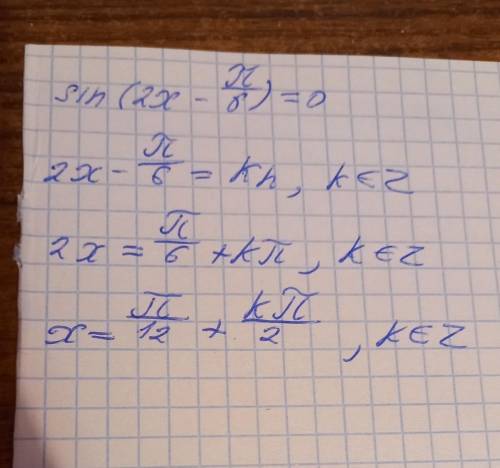 sin(2x - π/6) = 0
2x - π/6 = kπ, k∈Z
2x = π/6 + kπ, k∈Z
x = π/12 + kπ/2, k∈Z